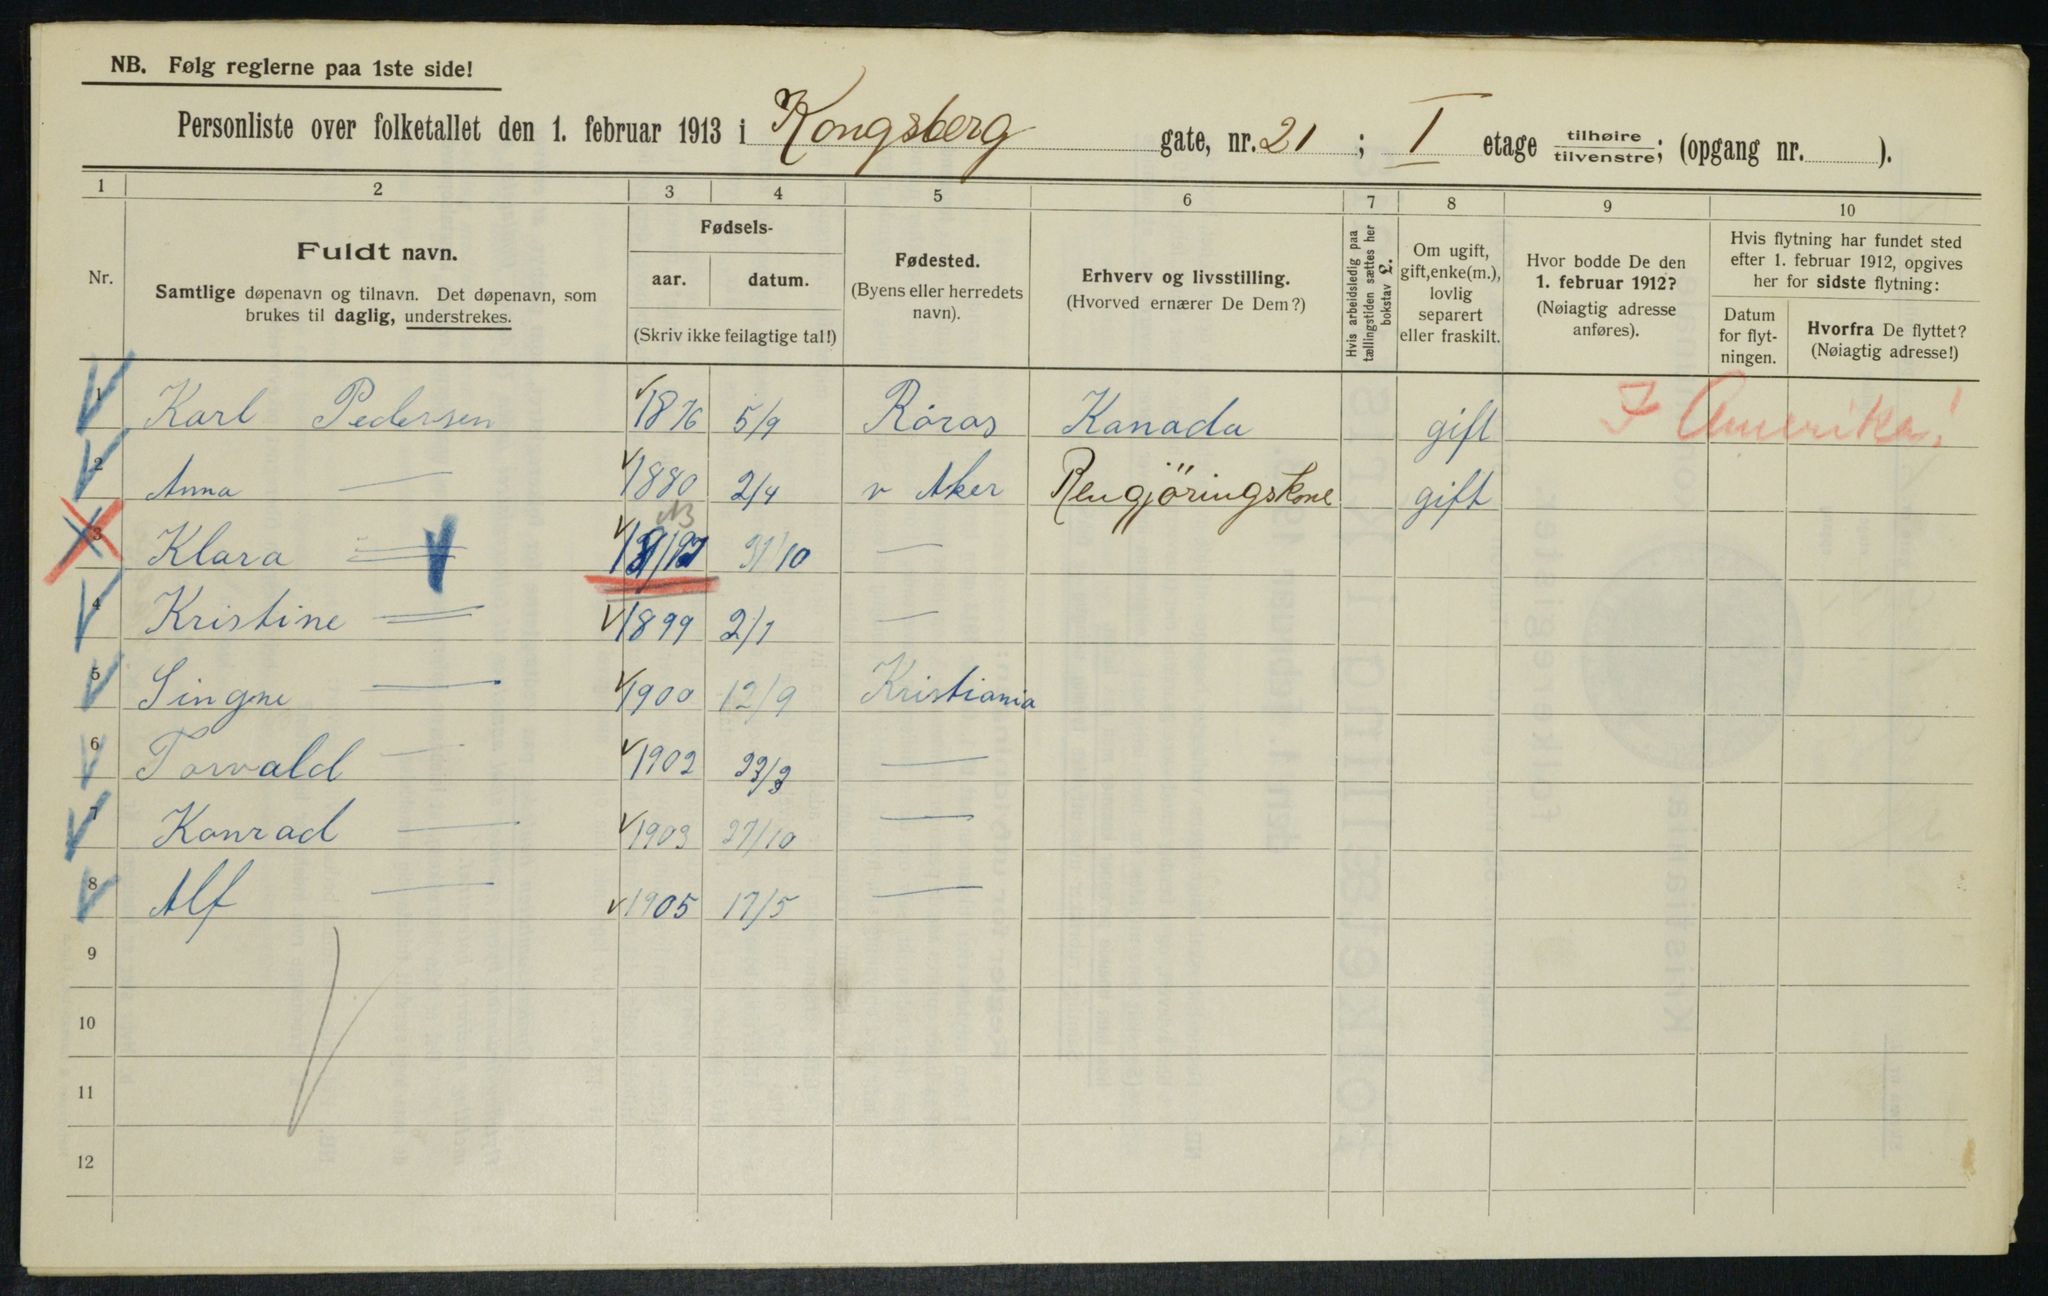 NB. Følg reglerne paa 1ste side!
Personliste over folketallet den 1. februar 1913 i Kongsberg gate, nr. 21 ; I etage tilhøire/tilvenstre; (opgang nr. ).
1 2 3 4 5 6 7 8 9 10
Nr.
Fuldt navn.
Samtlige døpenavn og tilnavn. Det døpenavn, som
brukes til daglig, understrekes.
Fødsels-
aar. datum.
(Skriv ikke feilagtige tal!)
Fødested.
(Byens eller herredets
navn).
Erhverv og livsstilling.
(Hvorved ernærer De Dem?)
Hvis arbeidsledig paa
tællingstiden sættes her
bokstav L.
Om ugift,
gift, enke(m.),
lovlig
separert
eller fraskilt.
Hvor bodde De den
1. februar 1912?
(Nøiagtig adresse
anføres).
Hvis flytning har fundet sted
efter 1. februar 1912, opgives
her for sidste flytning:
Datum
for flyt-
ningen.
Hvorfra De flyttet?
(Nøiagtig adresse!)
1 Karl Pedersen 1876 5/9 Röros Kanada gift I Amerika!
2 Anna — 1880 2/4 v Aker Rengjöringskone gift
3 Klara — 31/10 —
4 Kristine — 1899 2/1 —
5 Singne — 1900 12/9 Kristiania
6 Torvald — 1902 23/3 —
7 Konrad — 1903 27/10 —
8 Alf — 1905 17/5 —
9
10
11
12